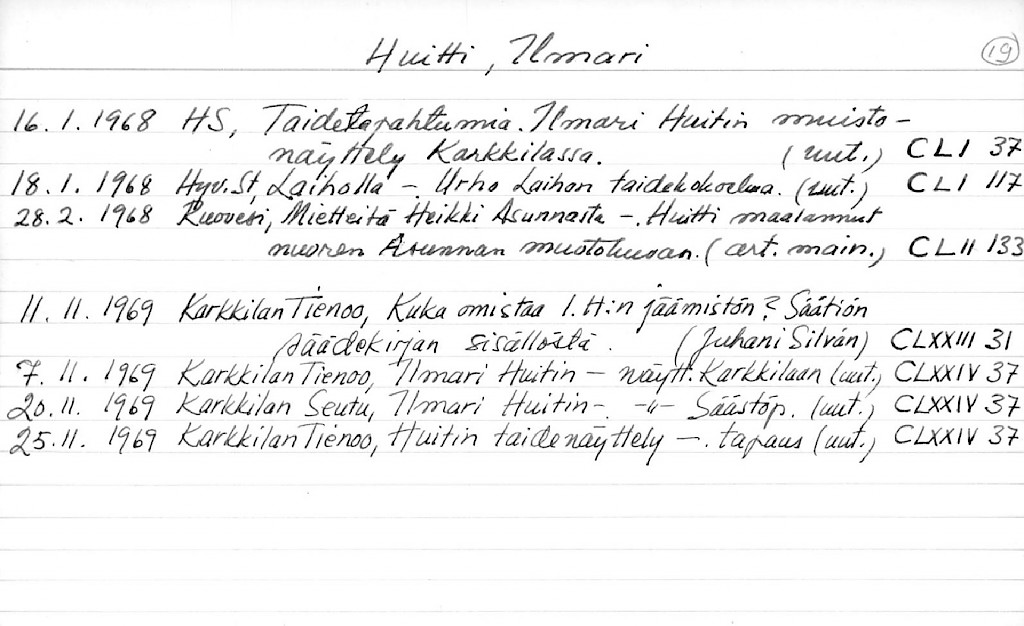 Huitti, Ilmari 19
16.1.1968 HS, Taidetapahtumia. Ilmari Huitin muisto-
näyttely Karkkilassa. (uut.) CLI 37
18.1.1968 Hyv.St, Laiholla - Urho Laihon taidekokoelma. (uut.) CLI 117
28.2.1968 Ruovesi, Mietteitä Heikki Asunnasta -. Huitti maalannut
nuoren Asunnan muotokuvan. (art. main.) CLII 133
11.11.1969 Karkkilan Tienoo, Kuka omistaa I.H:n jäämistön? Säätiön
säädekirjan sisällöstä. (Juhani Silván) CLXXIII 31
7.11.1969 Karkkilan Tienoo, Ilmari Huitin - näytt. Karkkilaan (uut.) CLXXIV 37
20.11.1969 Karkkilan Seutu, Ilmari Huitin -. -"- Säästöp. (uut.) CLXXIV 37
25.11.1969 Karkkilan Tienoo, Huitin taidenäyttely -. tapaus (uut.) CLXXIV 37